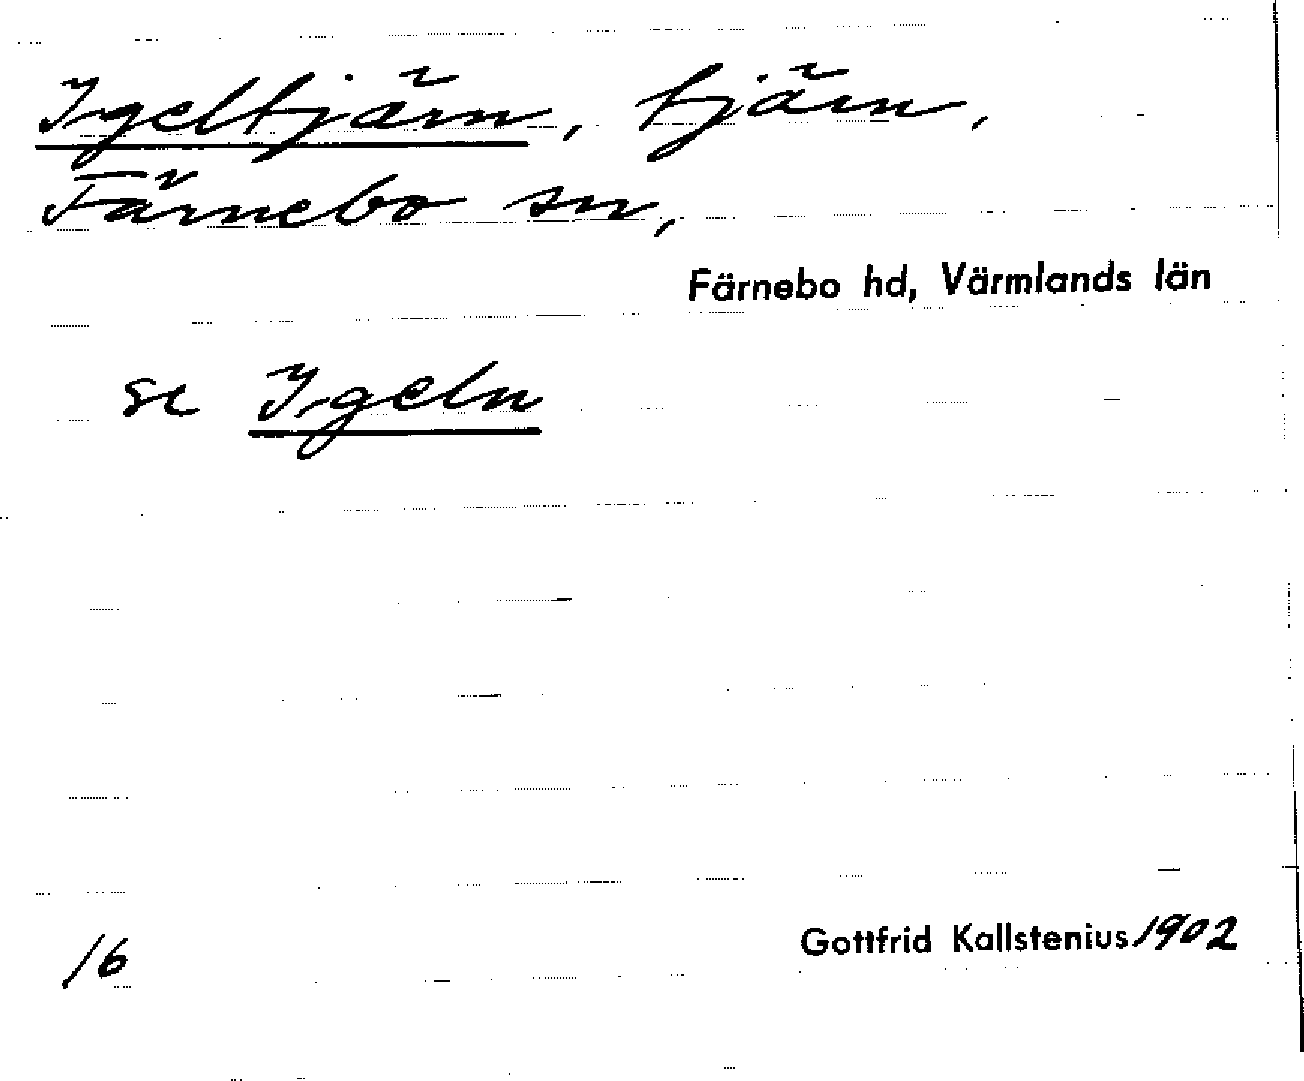 Igeltjärn, tjärn,
Färnebo sn,
Färnebo hd, Värmlands län
se Igeln
16
Gottfrid Kallstenius 1902